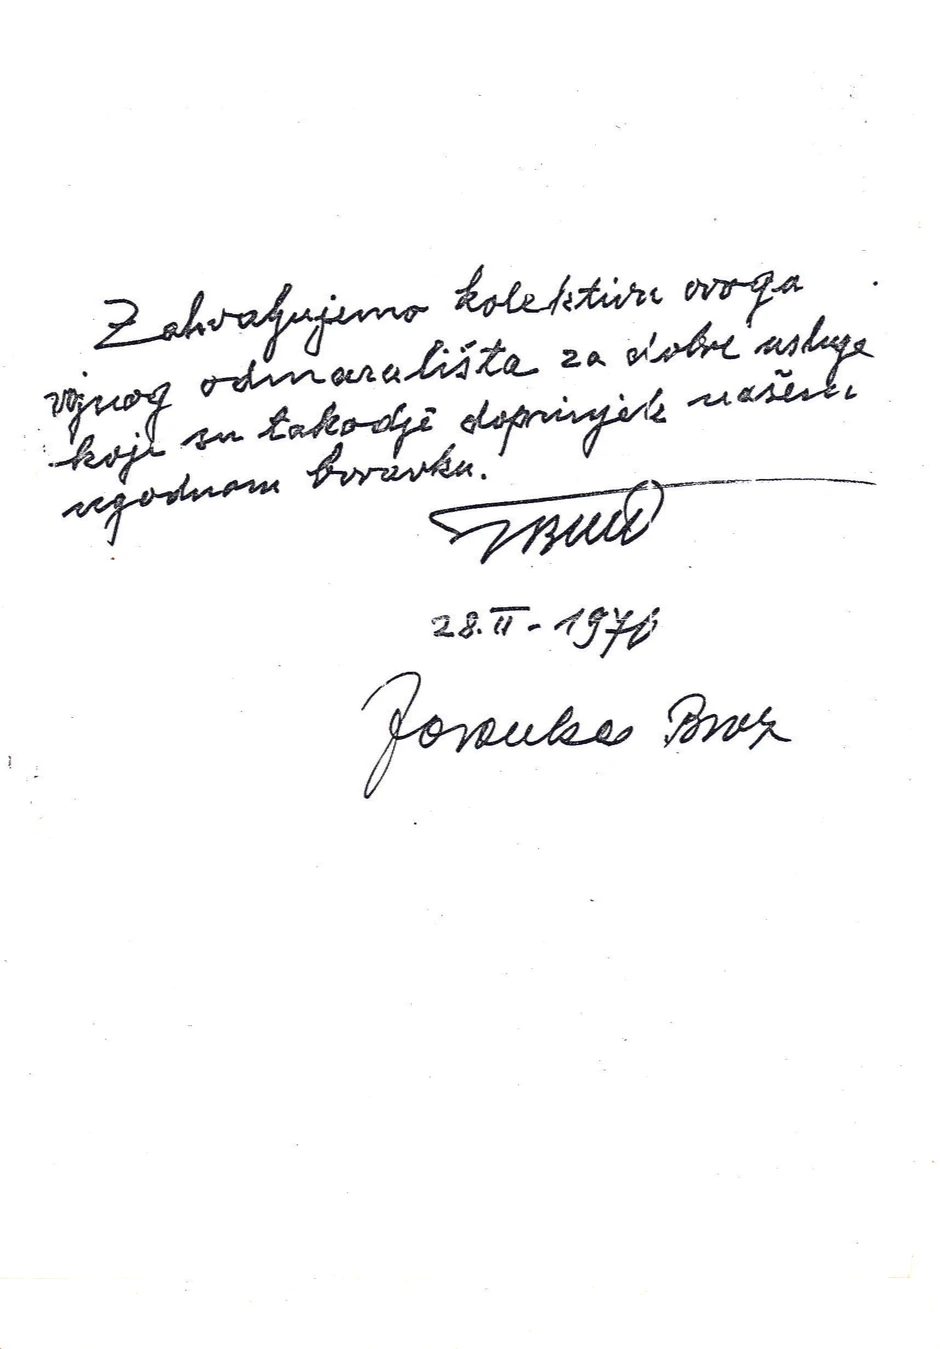 Zahvaljujemo kolektivu ovoga
vojnog odmarališta za dobre usluge
koje su takodjē doprinjele našemu
ugodnom boravku.
28.II-1970
Jovanka Broz